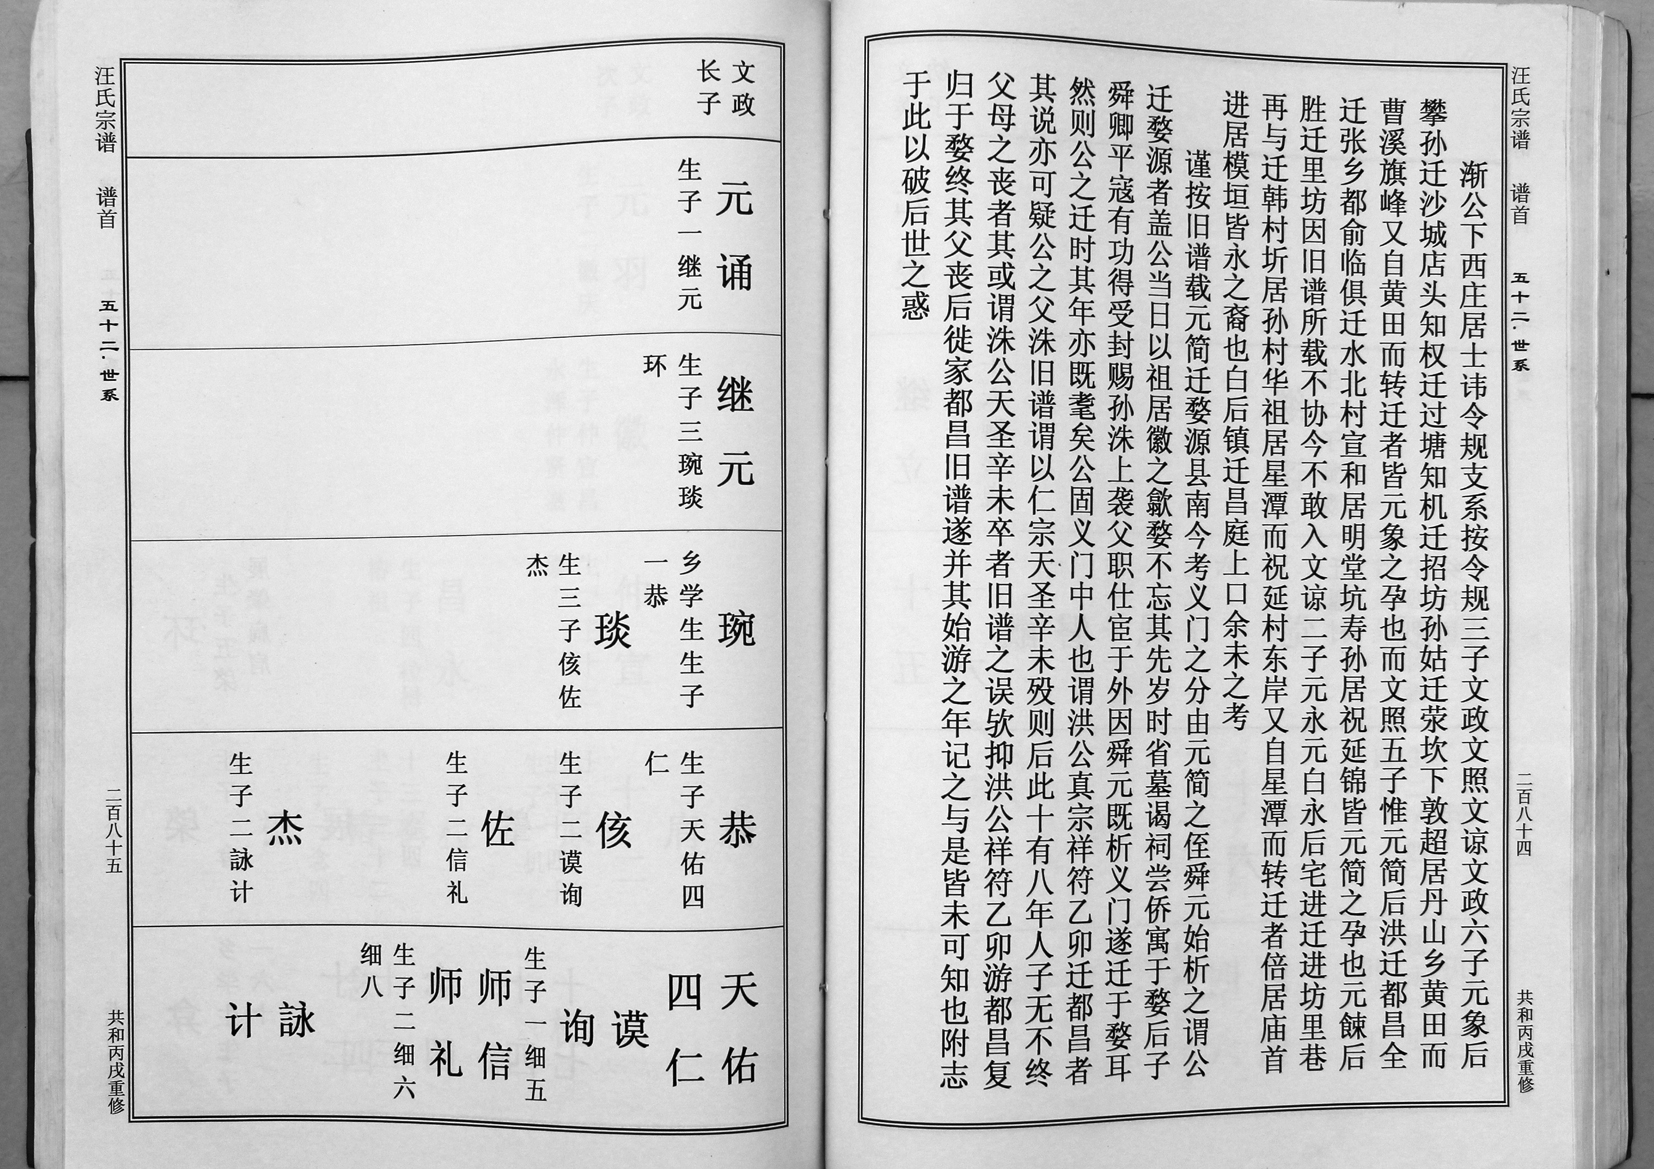 汪氏宗谱
谱首
五十二·世系
二百八十四
共和丙戌重修
渐公下西庄居士讳令规支系按令规三子文政文照文谅文政六子元象后
攀孙迁沙城店头知权迁过塘知机迁招坊孙姑迁荥坎下敦超居丹山乡黄田而
曹溪旗峰又自黄田而转迁者皆元象之孕也而文照五子惟元简后洪迁都昌全
迁张乡都俞临俱迁水北村宣和居明堂坑寿孙居祝延锦皆元简之孕也元餗后
胜迁里坊因旧谱所载不协今不敢入文谅二子元永元白永后宅进迁进坊里巷
再与迁韩村圻居孙村华祖居星潭而祝延村东岸又自星潭而转迁者倍居庙首
进居模垣皆永之裔也白后镇迁昌庭上口余未之考
谨按旧谱载元简迁婺源县南今考义门之分由元简之侄舜元始析之谓公
迁婺源者盖公当日以祖居徽之歙婺不忘其先岁时省墓谒祠尝侨寓于婺后子
舜卿平寇有功得受封赐孙洙上袭父职仕宦于外因舜元既析义门遂迁于婺耳
然则公之迁时其年亦既耄矣公固义门中人也谓洪公真宗祥符乙卯迁都昌者
其说亦可疑公之父洙旧谱谓以仁宗天圣辛未殁则后此十有八年人子无不终
父母之丧者其或谓洙公天圣辛未卒者旧谱之误欤抑洪公祥符乙卯游都昌复
归于婺终其父丧后徙家都昌旧谱遂并其始游之年记之与是皆未可知也附志
于此以破后世之惑
文政
长子
元诵
生子一继元
继元
生子三琬琰
环
琬
乡学生生子
一恭
琰
生三子侅佐
杰
恭
生子天佑四
仁
侅
生子二谟询
佐
生子二信礼
杰
生子二詠计
天佑
四仁
谟
询
生子一细五
师信
师礼
生子二细六
细八
詠
计
汪氏宗谱
谱首
五十二·世系
二百八十五
共和丙戌重修